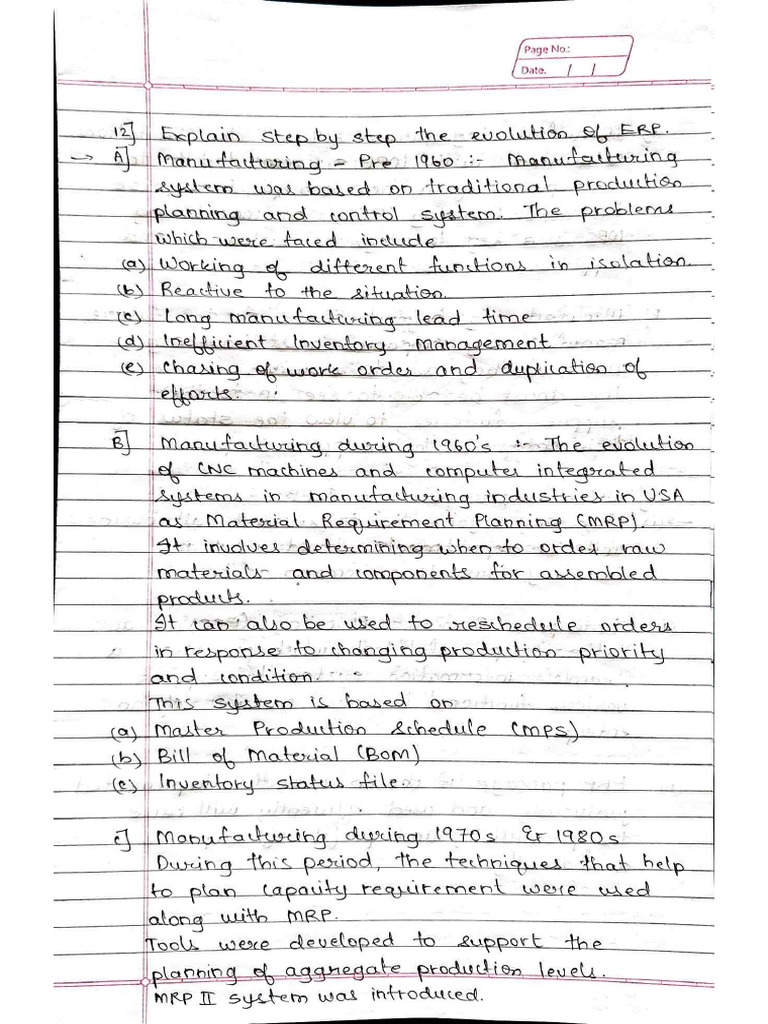 Page No.:
Date. / /
12] Explain step by step the evolution of ERP.
→ A] Manufacturing - Pre 1960 :- Manufacturing
system was based on traditional production
planning and control system. The problems
which were faced include
(a) Working of different functions in isolation.
(b) Reactive to the situation.
(c) Long manufacturing lead time
(d) Inefficient Inventory Management
(e) Chasing of work order and duplication of
efforts.
B] Manufacturing during 1960's :- The evolution
of CNC machines and computer integrated
systems in manufacturing industries in USA
as Material Requirement Planning (MRP).
It involves determining when to order raw
materials and components for assembled
products.
It can also be used to reschedule orders
in response to changing production priority
and condition.
This system is based on
(a) Master Production Schedule (MPS)
(b) Bill of Material (BOM)
(c) Inventory status file.
c] Manufacturing during 1970s & 1980s
During this period, the techniques that help
to plan capacity requirement were used
along with MRP.
Tools were developed to support the
planning of aggregate production levels.
MRP II system was introduced.